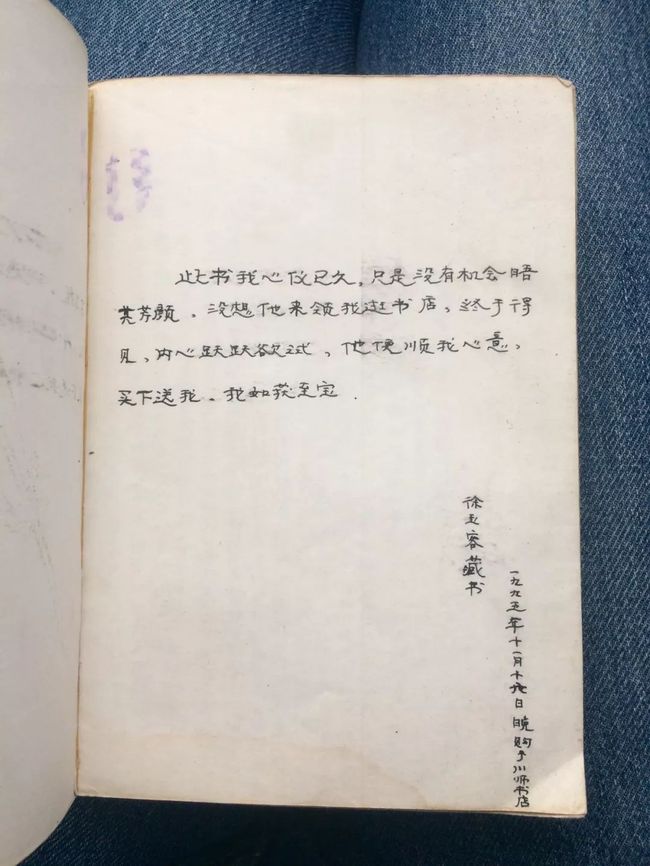 此书我心仪已久，只是没有机会晤
其芳颜。没想他来领我逛书店，终于得
见，内心跃跃欲试，他便顺我心意，
买下送我。我如获至宝.
徐玉容藏书
一九九五年十一月十九日晚购于川师书店